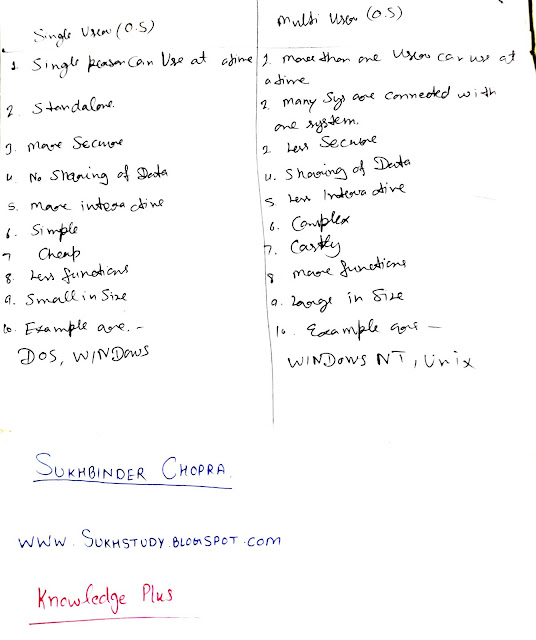 Single User (O.S)
1. Single person Can Use at atime
2. Standalone.
3. More Secure
4 No Sharing of Data
5. more interactive
6. Simple
7 Cheap
8. Less functions
9. Small in Size
10. Example are. -
DOS, WINDOWS
Multi User (O.S)
1. more than one User can use at
a time
2. Many Sys are connected with
one system.
3. Less Secure
4. Sharing of Data
5 Less Interactive
6. Complex
7. Costly
8 more functions
9. Large in Size
10. Example are -
WINDOWS NT, Unix
SUKHBINDER CHOPRA.
WWW.SUKHSTUDY.BLOGSPOT.COM
Knowledge Plus